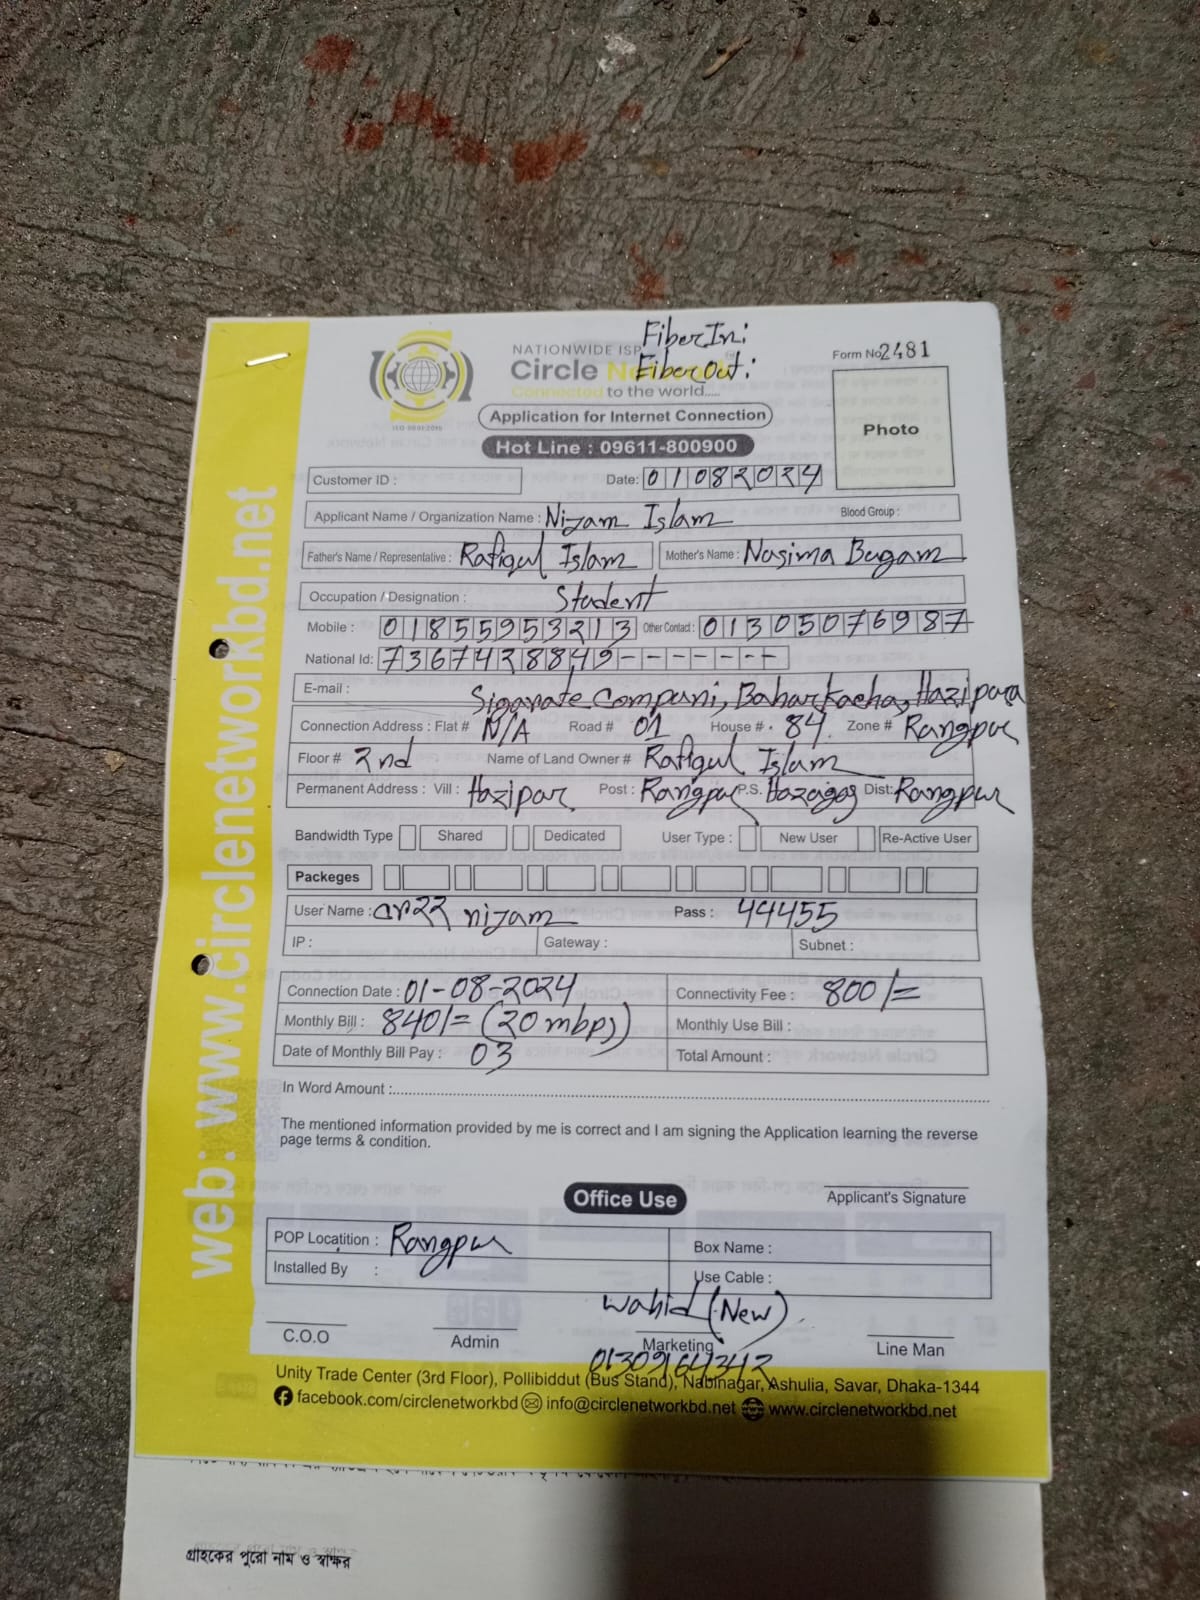 Fiber In:
Fiber Out:
NATIONWIDE ISP
Circle Network
Connected to the world.....
ISO 9001:2015
Form No 2481
Application for Internet Connection
Photo
Hot Line : 09611-800900
Customer ID :
Date: 01082024
Applicant Name / Organization Name : Nizam Islam Blood Group :
Father's Name / Representative : Rafiqul Islam Mother's Name : Nasima Bugam
Occupation / Designation : Student
Mobile : 01855953213 Other Contact : 01305076987
National Id: 7367428849-------
E-mail : Sigarate Compani, Baharkacha, Hazipara
Connection Address : Flat # N/A Road # 01 House # 84 Zone # Rangpur
Floor # 2nd Name of Land Owner # Rafiqul Islam
Permanent Address : Vill : Hazipar Post : Rangpur P.S. Hazagos Dist: Rangpur
Bandwidth Type Shared Dedicated User Type : New User Re-Active User
Packeges
User Name : cn22 nizam Pass : 44455
IP : Gateway : Subnet :
Connection Date : 01-08-2024 Connectivity Fee : 800/=
Monthly Bill : 840/= (20 mbps) Monthly Use Bill :
Date of Monthly Bill Pay : 03 Total Amount :
In Word Amount :
The mentioned information provided by me is correct and I am signing the Application learning the reverse
page terms & condition.
Applicant's Signature
Office Use
POP Locatition : Rangpur Box Name :
Installed By : Use Cable :
Wahid (New)
C.O.O Admin Marketing Line Man
01309164342
Unity Trade Center (3rd Floor), Pollibiddut (Bus Stand), Nabinagar, Ashulia, Savar, Dhaka-1344
facebook.com/circlenetworkbd info@circlenetworkbd.net www.circlenetworkbd.net
web: www.circlenetworkbd.net
গ্রাহকের পুরো নাম ও স্বাক্ষর